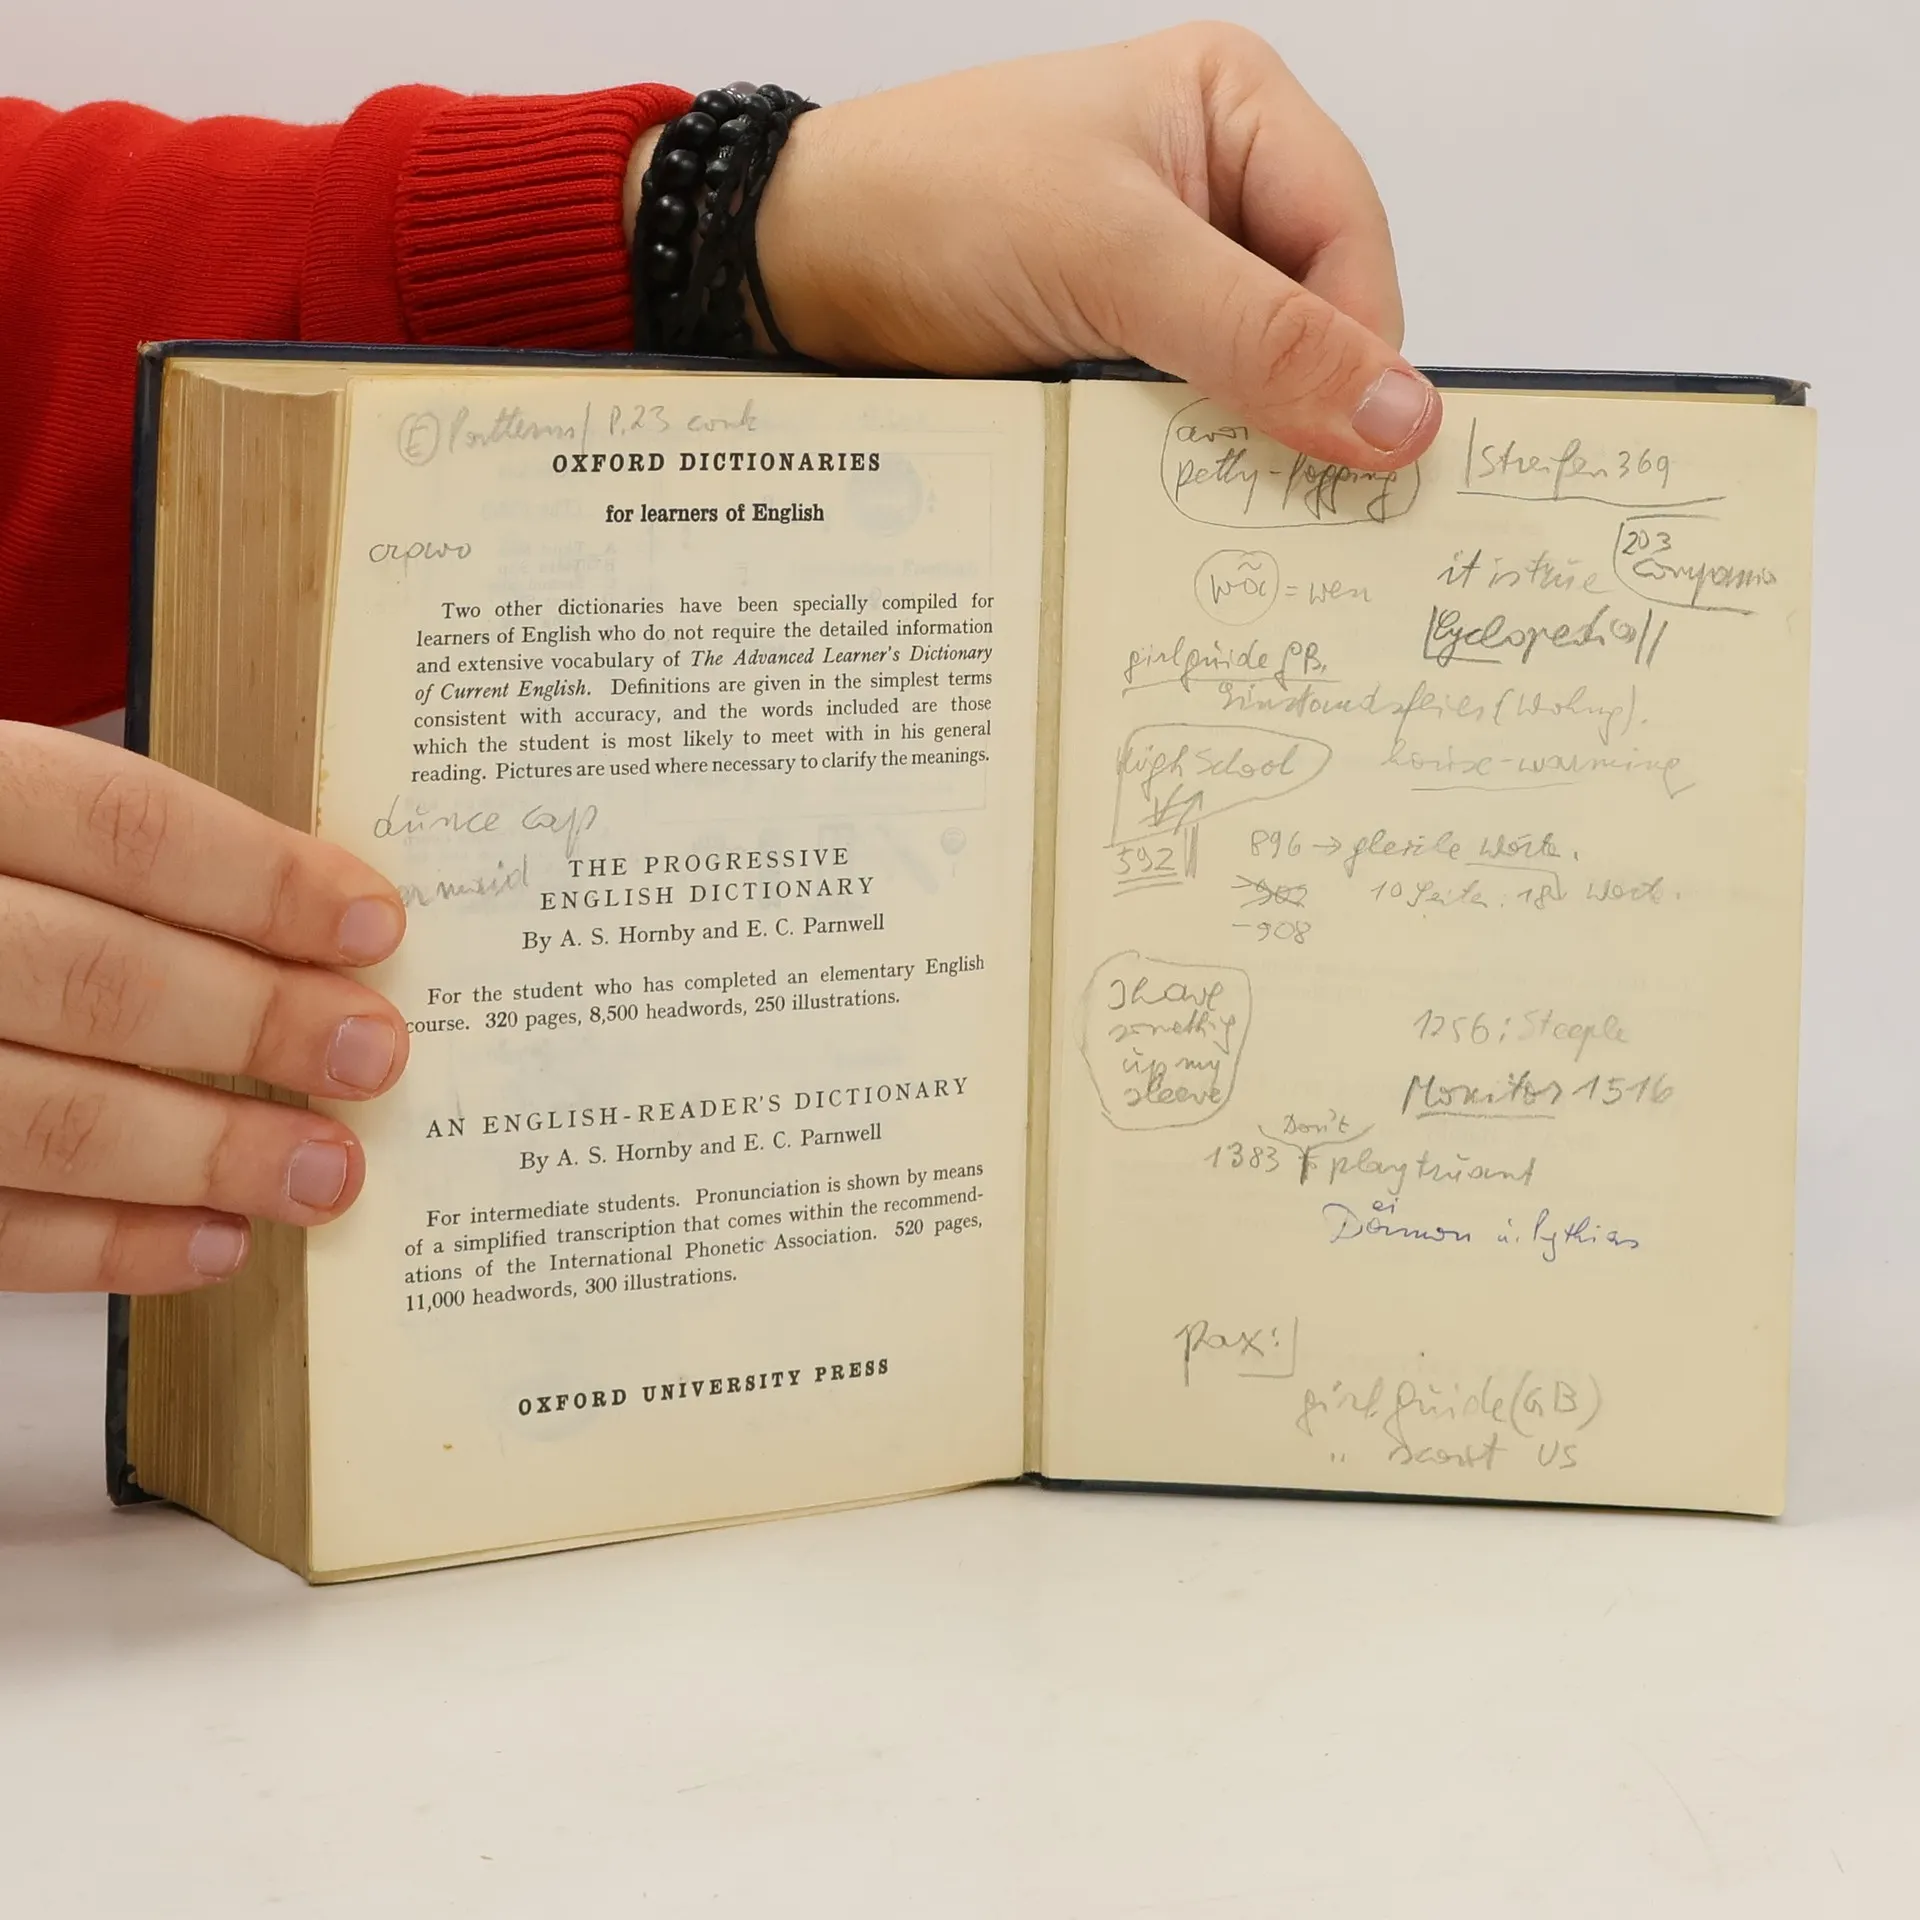 P.23
OXFORD DICTIONARIES
for learners of English
Two other dictionaries have been specially compiled for
learners of English who do not require the detailed information
and extensive vocabulary of The Advanced Learner's Dictionary
of Current English. Definitions are given in the simplest terms
consistent with accuracy, and the words included are those
which the student is most likely to meet with in his general
reading. Pictures are used where necessary to clarify the meanings.
dunce cap
THE PROGRESSIVE
ENGLISH DICTIONARY
By A. S. Hornby and E. C. Parnwell
For the student who has completed an elementary English
course. 320 pages, 8,500 headwords, 250 illustrations.
AN ENGLISH-READER'S DICTIONARY
By A. S. Hornby and E. C. Parnwell
For intermediate students. Pronunciation is shown by means
of a simplified transcription that comes within the recommend-
ations of the International Phonetic Association. 520 pages,
11,000 headwords, 300 illustrations.
OXFORD UNIVERSITY PRESS
petty-fogging
Streifen 369
203
it is true
wõ =
Cyclopedia
girl guide GB.
(Wohng).
High School
house-warming
592
896 →
902
-908
I have
something
up my
sleeve
1256: Steeple
Monitor 1516
Don't
1383 play truant
Damon u. Pythias
pax:
girl guide (GB)
" scout US